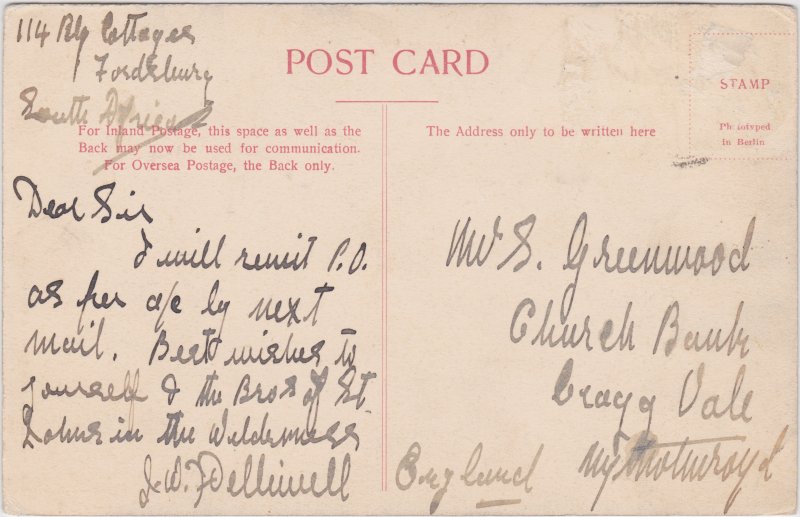 114 Rly Cottages
Fordsburg
South Africa
POST CARD
STAMP
Phototyped
in Berlin
For Inland Postage, this space as well as the
Back may now be used for communication.
For Oversea Postage, the Back only.
The Address only to be written here
Dear Sir
I will remit P.O.
as per a/c by next
mail. Best wishes to
yourself & the Bros of St
Johns in the Wilderness
J.W.
Mr S. Greenwood
Church Bank
Cragg Vale
Mytholmroyd
England